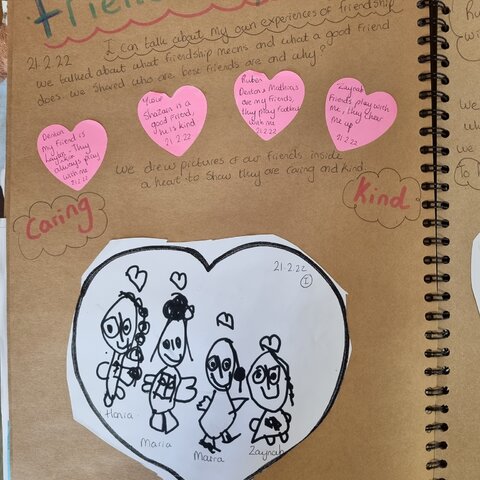 friend
I can talk about my own experiences of friendship
21.2.22
we talked about what friendship means and what a good friend
does. we shared who are best friends are and why?
Denton
My friend is
Layton. They
always play
with me
21.2.22
Shazain is a
good friend,
he is kind
21.2.22
Ruben
Denton & Mathias
are my friends,
they play football
with me
21.2.22
Zaynab
Friends play with
me, they cheer
me up
21.2.22
we drew pictures of our friends inside
a heart to show they are caring and kind.
Caring
Kind
21.2.22
Hania
Maria
Maira
Zaynab